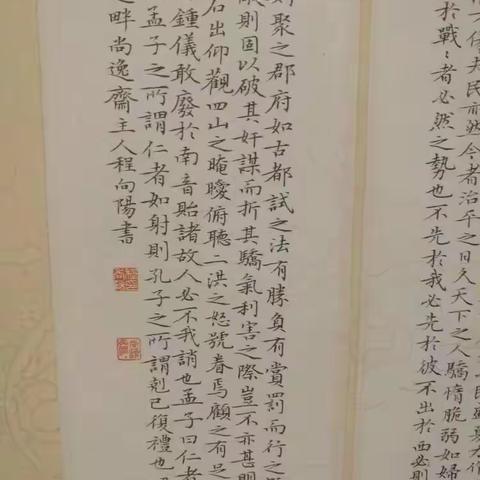 夫民亦然今者治平之日久天下之人驕惰脆弱如婦
於戰〻者必然之勢也不先於我必先於彼不出於西必則
聚之郡府如古都試之法有勝負有賞罰而行之
則固以破其奸謀而折其驕氣利害之際豈不亦甚明
石出仰觀四山之晻曖俯聽二洪之怒號眷焉顧之有足
鍾儀敢廢於南音貽諸故人必不我誚也孟子曰仁者
孟子之所謂仁者如射則孔子之所謂剋己復禮也
之畔尚逸齋主人程向陽書